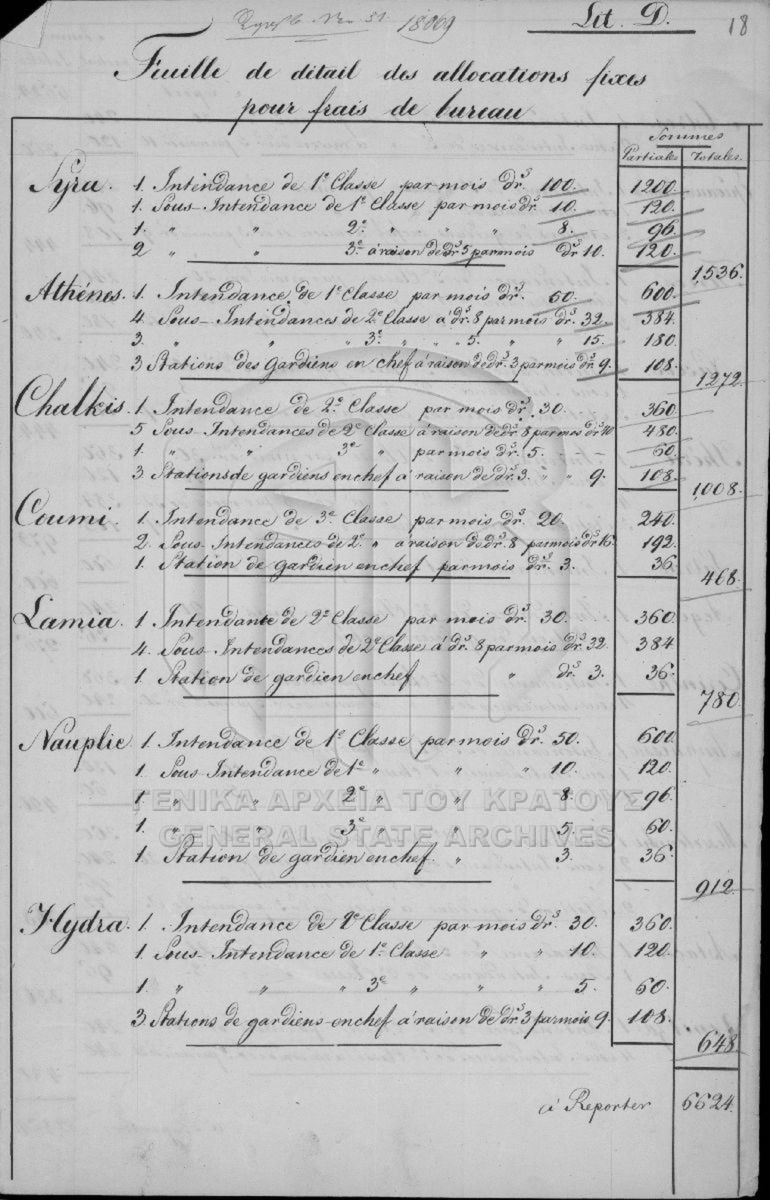 18009 Lit. D. 18
Feuille de détail des allocations fixes
pour frais de bureau
Sommes
Partiales Totales.
Syra. 1. Intendance de 1e Classe par mois Drs 100. 1200.
1. Sous-Intendance de 1e Classe par mois Drs 10. 120.
1. " " 2e " " " 8. 96.
2 " " 3e à raison de drs 5 par mois Drs 10. 120.
1,536.
Athénes. 1. Intendance de 1e Classe par mois Drs. 50. 600.
4. Sous-Intendances de 2e Classe à drs 8 par mois drs. 32. 384.
3. " " " 3e " " " 5. " " 15. 180.
3 Stations des Gardiens en chef à raison de drs. 3 par mois drs 9. 108.
1272.
Chalkis. 1. Intendance de 2e Classe par mois Drs. 30. 360.
5 Sous Intendances de 2e Classe à raison de drs 8 par mois drs 40 480.
1. " " 3e " par mois drs. 5. 60.
3 Stations de gardiens en chef à raison de drs. 3. " " 9. 108.
1,008.
Coumi. 1. Intendance de 3e Classe par mois Drs. 20. 240.
2. Sous-Intendances de 2e " à raison de drs 8 par mois drs 16. 192.
1. Station de gardien en chef par mois drs. 3. 36.
468.
Lamia. 1 Intendante de 2e Classe par mois Drs. 30. 360.
4. Sous-Intendances de 2e Classe à drs. 8 par mois drs. 32. 384
1 Station de gardien en chef " drs 3. 36.
780.
Nauplie 1. Intendance de 1e Classe par mois Drs. 50. 600.
1. Sous-Intendance de 1e " " " 10. 120.
1 " " 2e " " 8. 96.
ΓΕΝΙΚΑ ΑΡΧΕΙΑ ΤΟΥ ΚΡΑΤΟΥΣ
1. " " 3e " " 5. 60.
GENERAL STATE ARCHIVES
1 Station de gardien en chef. " 3. 36.
912.
Hydra. 1. Intendance de 2e Classe par mois Drs. 30. 360.
1 Sous-Intendance de 1e Classe " " 10. 120.
1. " " " 3e " " " 5. 60.
3 Stations de gardiens en chef à raison de drs 3 par mois 9. 108.
648.
à Reporter 6624.